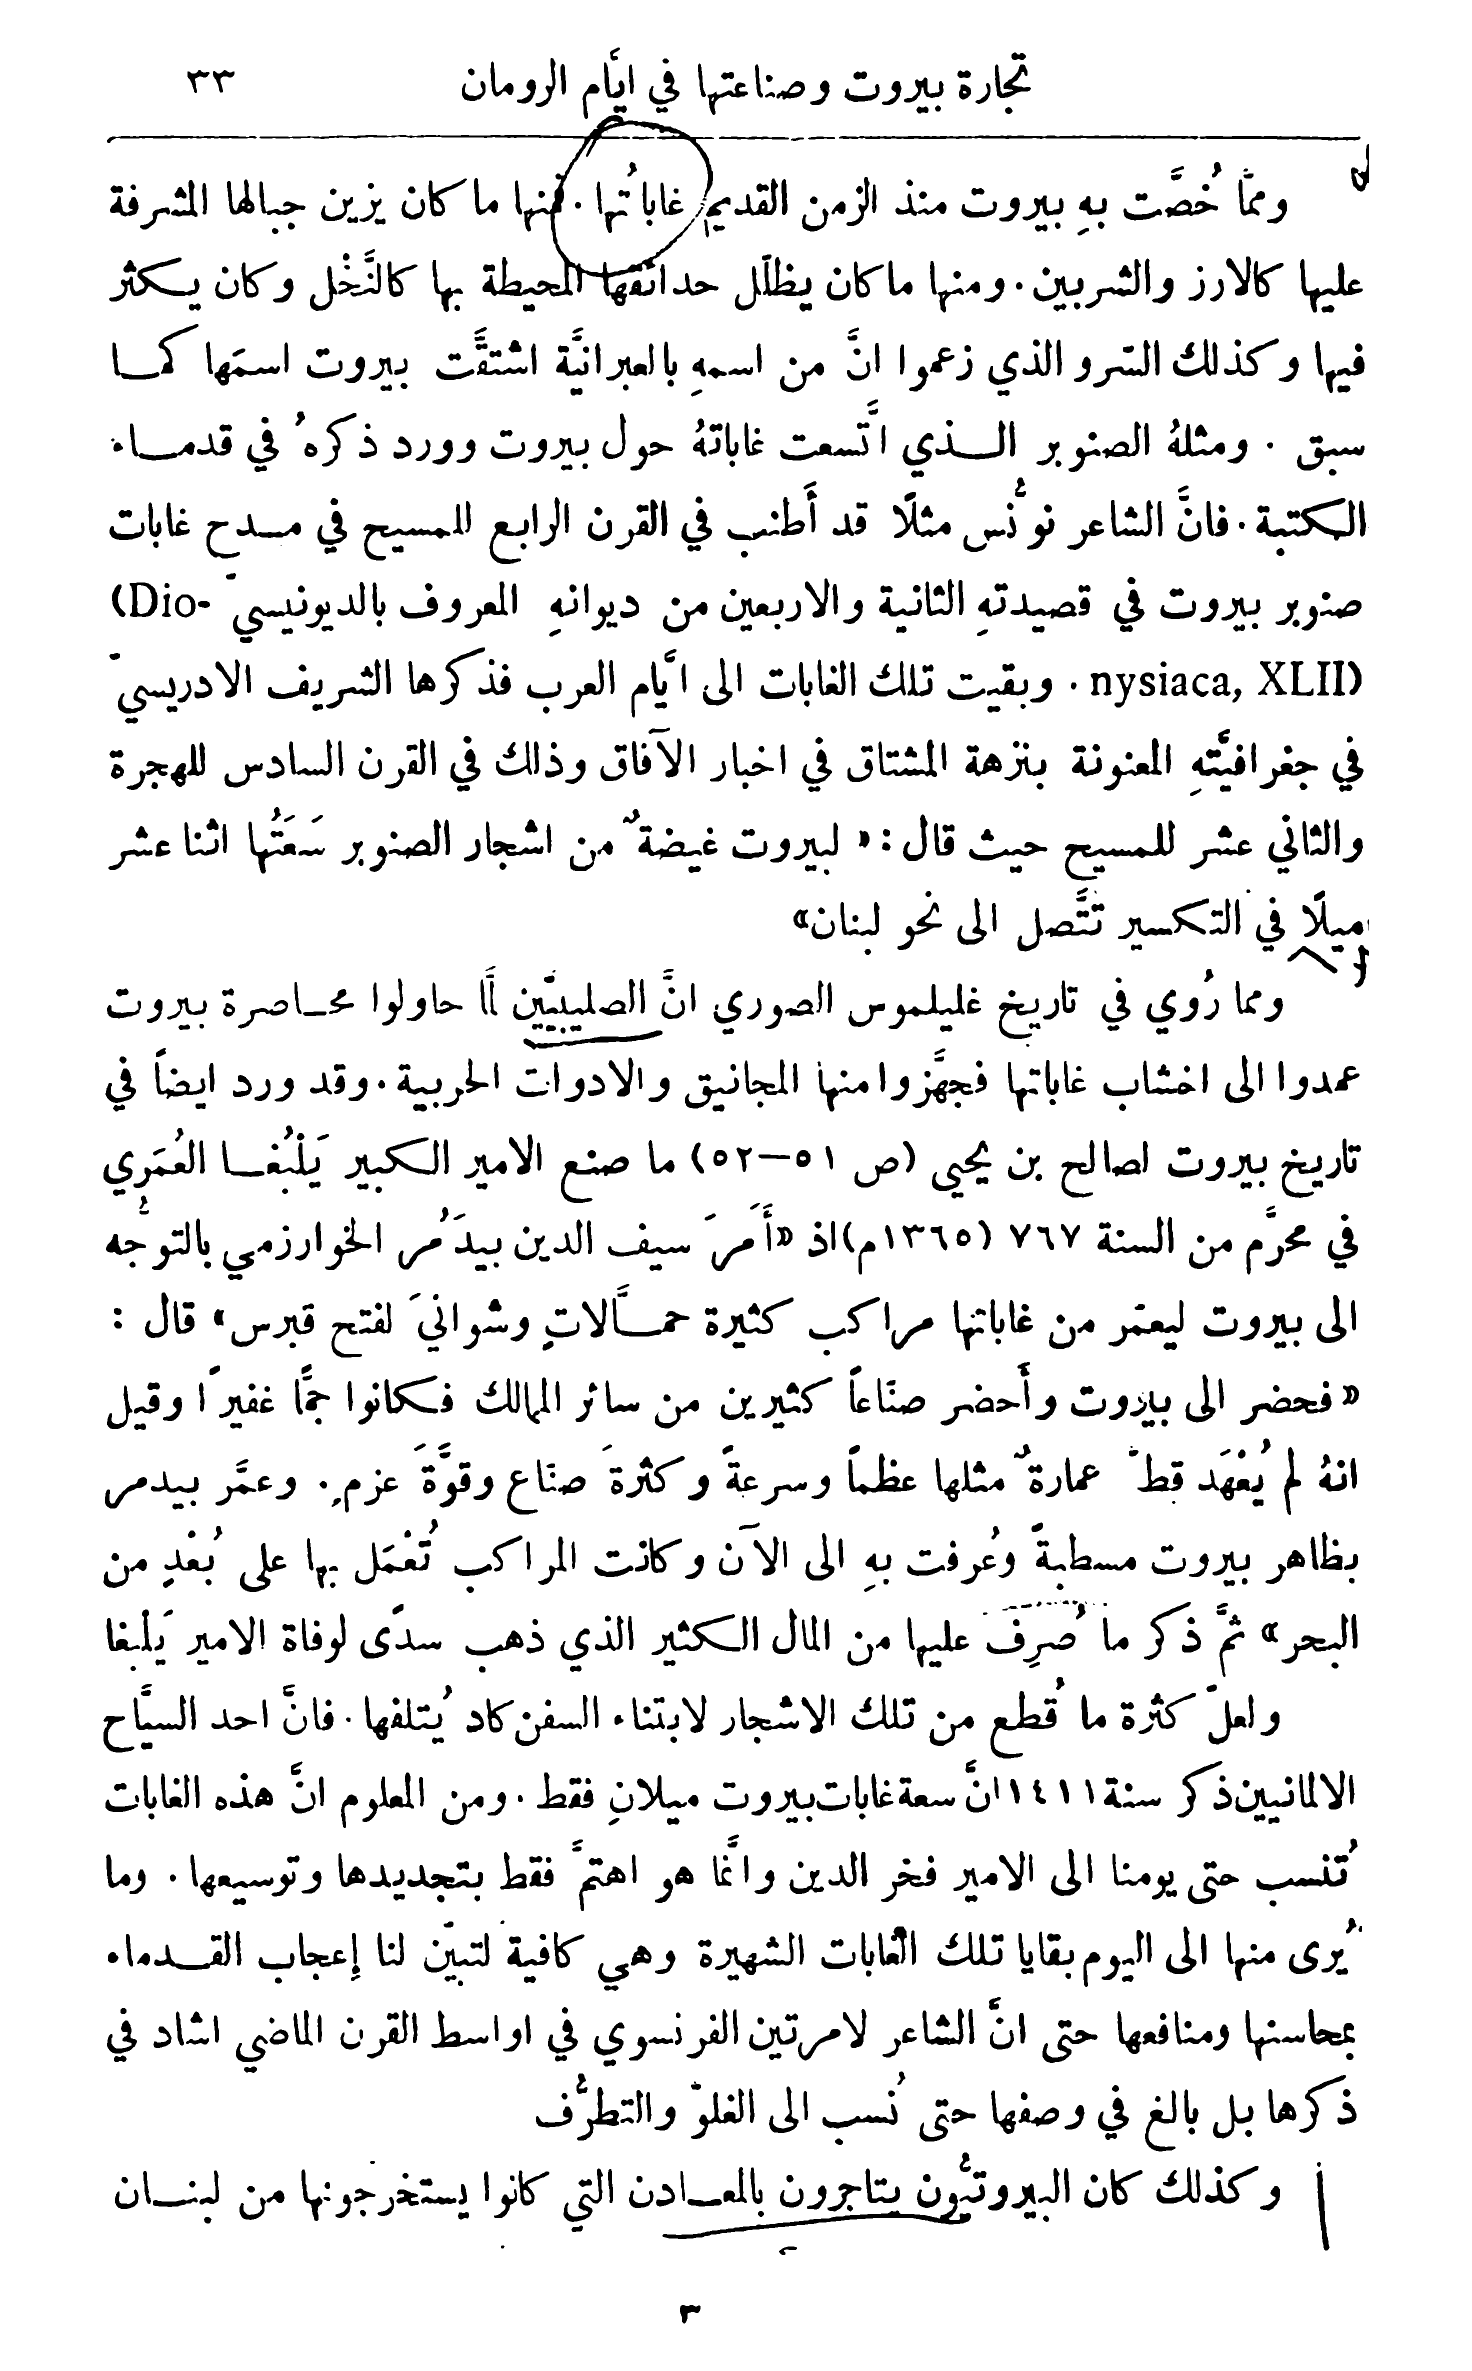 تجارة بيروت وصناعتها في ايَّام الرومان ٣٣
وممَّا خُصَّت بهِ بيروت منذ الزمن القديم غاباتُها . فمنها ما كان يزين جبالها المشرفة
عليها كالارز والشربين . ومنها ما كان يظلّل حدائقها المحيطة بها كالنَّخْل وكان يكثر
فيها وكذلك السَّرو الذي زعموا انَّ من اسمهِ بالعبرانيَّة اشتقَّت بيروت اسمَها كما
سبق . ومثلهُ الصنوبر الذي اتَّسعت غاباتهُ حول بيروت وورد ذكرهُ في قدماء
الكتبة . فانَّ الشاعر نونُّس مثلًا قد أَطنب في القرن الرابع للمسيح في مدح غابات
صنوبر بيروت في قصيدتهِ الثانية والاربعين من ديوانهِ المعروف بالديونيسيّ (Dio-
nysiaca, XLII) . وبقيت تلك الغابات الى ايَّام العرب فذكرها الشريف الادريسيّ
في جغرافيَّتهِ المعنونة بنزهة المشتاق في اخبار الآفاق وذلك في القرن السادس للهجرة
والثاني عشر للمسيح حيث قال : « لبيروت غيضةٌ من اشجار الصنوبر سَعَتُها اثنا عشر
ميلًا في التكسير تتَّصل الى نحو لبنان»
ومما رُوي في تاريخ غليلموس الصوري انَّ الصليبيّين لمَّا حاولوا محاصرة بيروت
عمدوا الى اخشاب غاباتها فجهَّزوا منها المجانيق والادوات الحربية . وقد ورد ايضاً في
تاريخ بيروت لصالح بن يحيى (ص ٥١–٥٢) ما صنع الامير الكبير يَلْبُغا العُمَري
في محرَّم من السنة ٧٦٧ (١٣٦٥م) اذ «أَمرَ سيف الدين بيدَمُر الخوارزمي بالتوجُّه
الى بيروت ليعمّر من غاباتها مراكب كثيرة حمَّالاتٍ وشوانيَ لفتح قبرس» قال :
« فحضر الى بيروت وأَحضر صنّاعاً كثيرين من سائر الممالك فكانوا جمًّا غفيرًا وقيل
انهُ لم يُعْهَد قطّ عمارةٌ مثلها عظماً وسرعةً وكثرةَ صنّاع وقوَّةَ عزمٍ . وعمَّر بيدمر
بظاهر بيروت مسطبةً وعُرفت بهِ الى الآن وكانت المراكب تُعْمَل بها على بُعْدٍ من
البحر » ثمَّ ذكر ما صُرِف عليها من المال الكثير الذي ذهب سدًى لوفاة الامير يَلبغا
ولعلّ كثرة ما قُطع من تلك الاشجار لابتناء السفن كاد يُتلفها . فانَّ احد السيَّاح
الالمانيين ذكر سنة ١٤١١ انَّ سعة غابات بيروت ميلانِ فقط . ومن المعلوم انَّ هذه الغابات
تُنسب حتى يومنا الى الامير فخر الدين وانَّما هو اهتمَّ فقط بتجديدها وتوسيعها . وما
يُرى منها الى اليوم بقايا تلك الغابات الشهيرة وهي كافية لتبيّن لنا إعجاب القدماء
بمحاسنها ومنافعها حتى انَّ الشاعر لامرتين الفرنسوي في اواسط القرن الماضي اشاد في
ذكرها بل بالغ في وصفها حتى نُسب الى الغلوّ والتطرُّف
وكذلك كان البيروتيُّون يتاجرون بالمعادن التي كانوا يستخرجونها من لبنان
٣